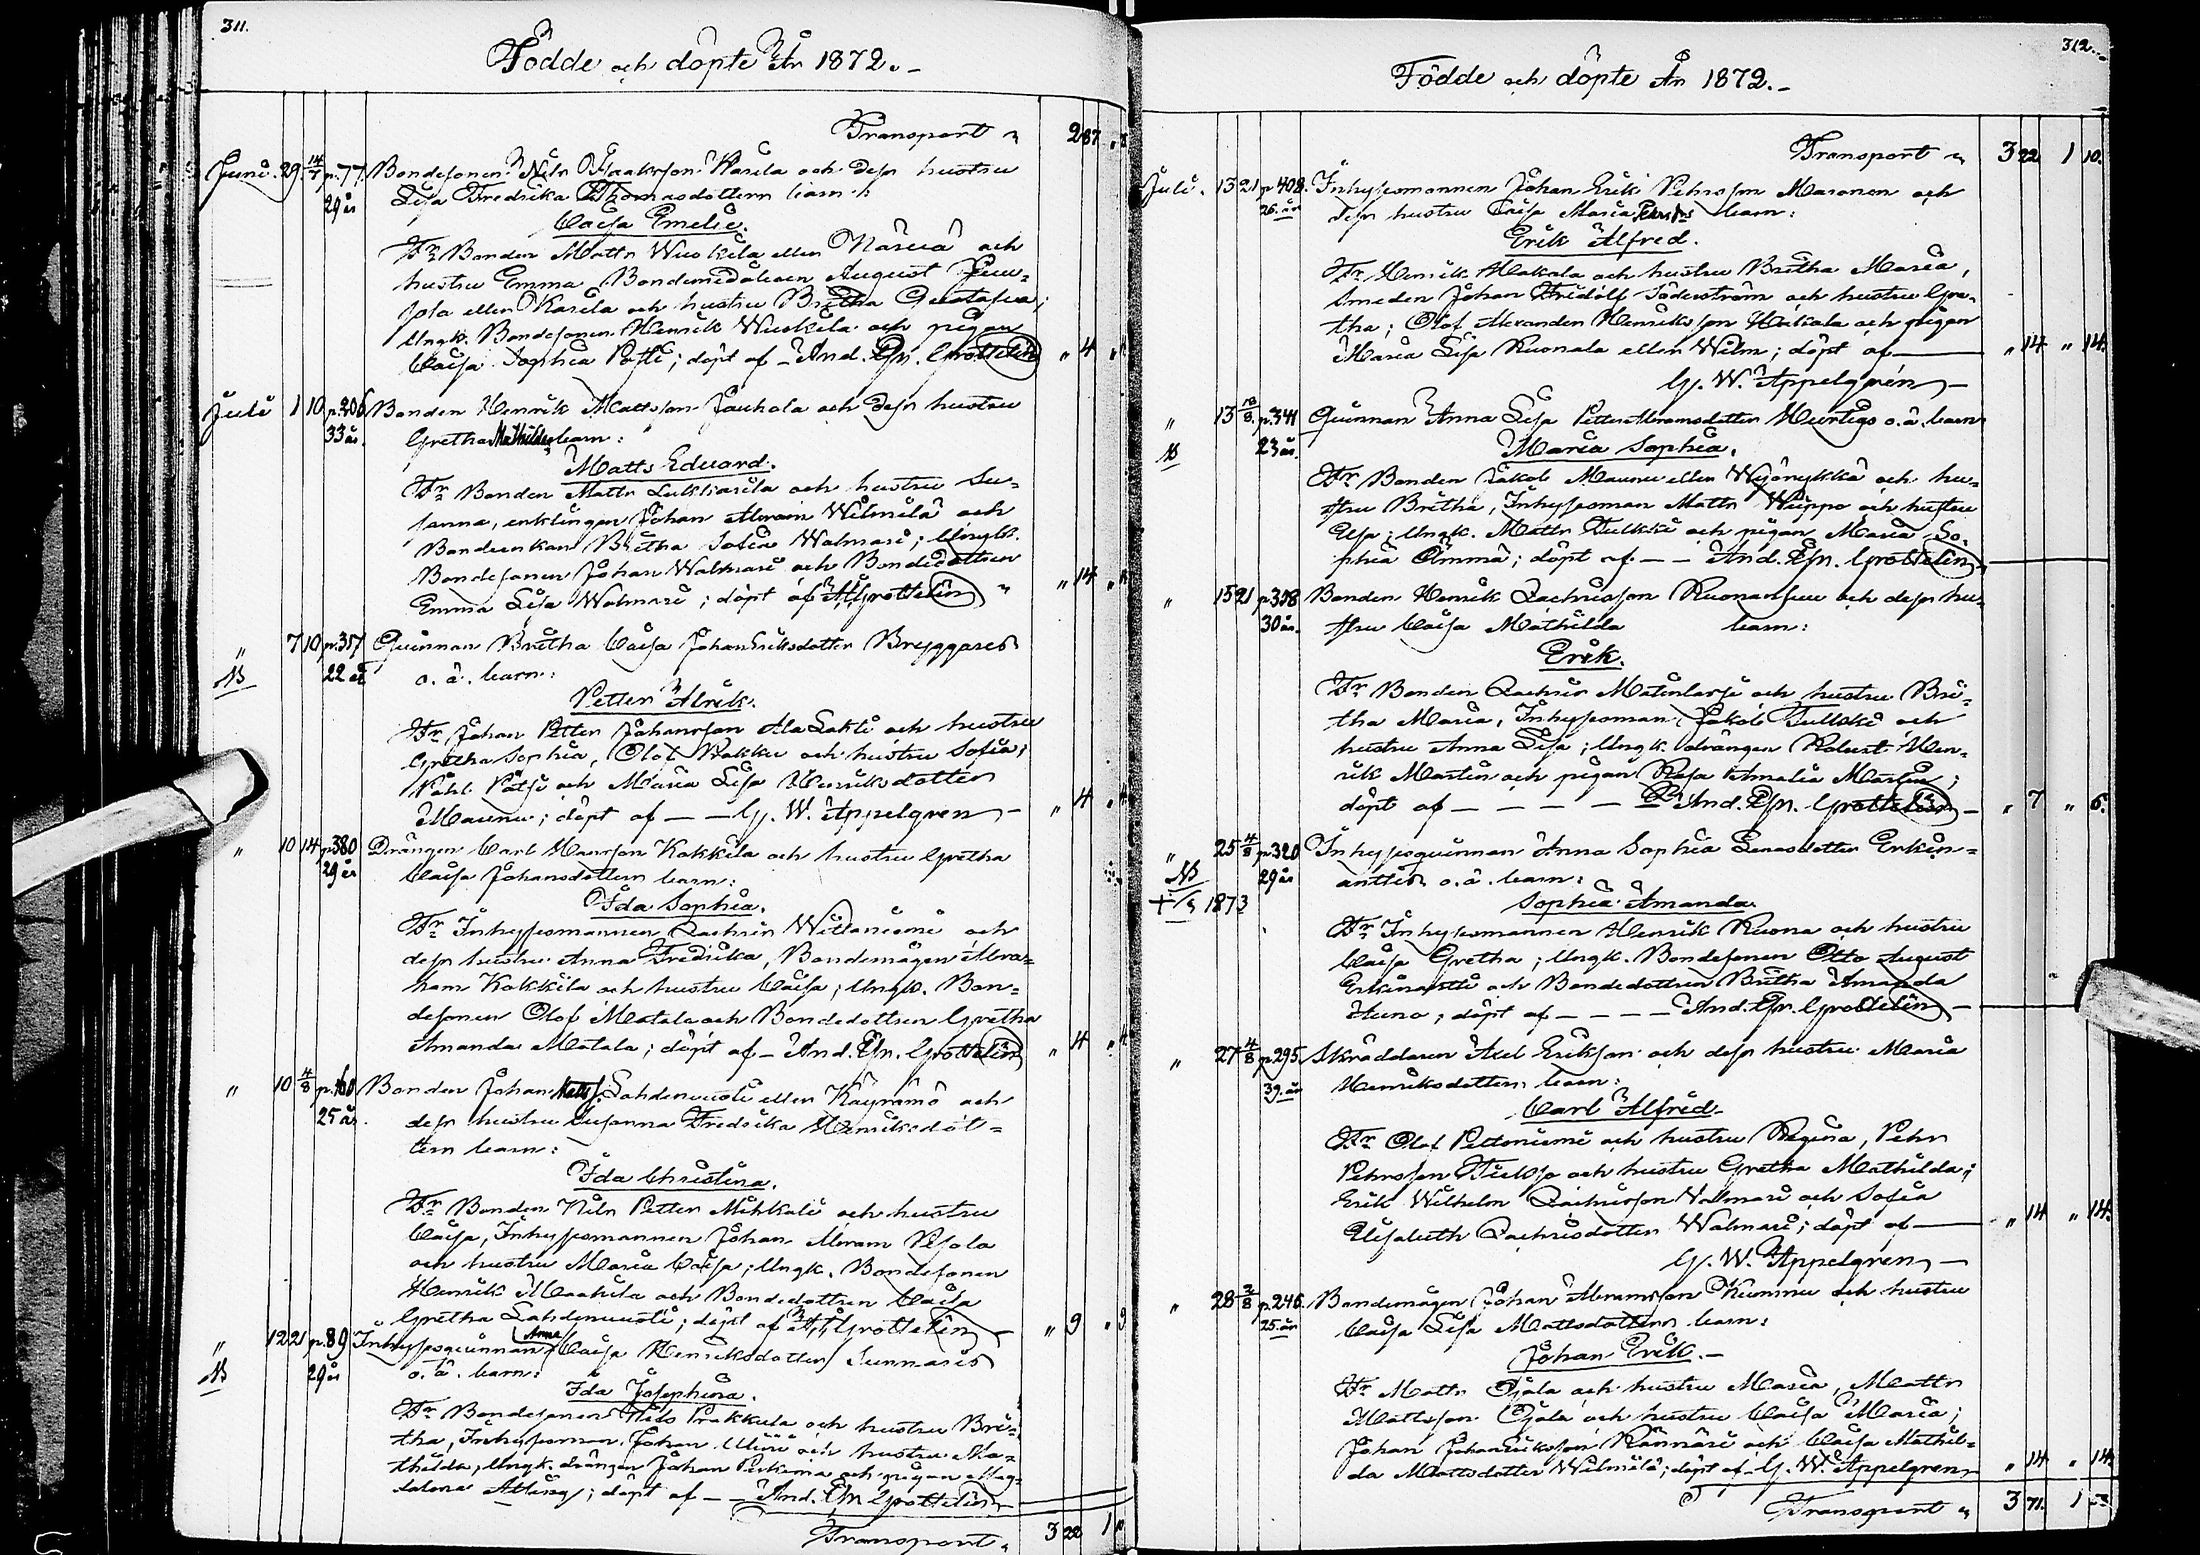 311.
Födde och döpte År 1872.-
Transport „ 287 „
Juni. 29. 14/7 p. 77. Bondesonen Nils Isaaksson Karila och dess hustru
29 år Lisa Fredrika Thomasdotters barn:
Caisa Emelie.
Fr Bonden Matts Wuokila eller och
hustru Emma, Bondemågen August
eller Karila och hustru Britha Gustafva;
Ungk. Bondesonen Henrik Wuokila och pigan
Caisa Sophia; döpt af - And. Efr. Grottelin „ 4
Juli 1 10 p. 206 Bonden Henrik Mattsson Jauhola och dess hustru
33 år. Gretha Mathildas barn:
Matts Eduard.
Fr Bonden Matts Lukkarila och hustru Su-
sanna, enklingen Johan Abram Wilmilä och
Bondeenkan Britha Sofia Walmari; Ungk.
Bondesonen Johan Walmari och Bondedottren
Emma Lisa Walmari; döpt af A. E. Grottelin „ „ 14
„ 7 10 p. 317 Qvinnan Britha Caisa Johan Eriksdotter Bryggares
NB 22 år o. ä. barn:
Petter Alrik.
Fr Johan Petter Johansson Ala Lahti och hustru
Gretha Sophia, Olof Prakku och hustru Sofia;
och Maria Lisa Henriksdotter
Maunu; döpt af - - G. W. Appelgren - „ 4
„ 10 14 p. 380 Drängen Carl Hansson Kokkila och hustru Gretha
29 år Caisa Johansdotters barn:
Ida Sophia.
Fr Inhysesmannen Zachris Wittaniemi och
dess hustru Anna Fredrika, Bondemågen Abra-
ham Kokkila och hustru Caisa; Ungk. Bon-
desonen Olof Matala och Bondedottren Gretha
Amanda Matala; döpt af - And. Efr. Grottelin „ 4
„ 10 4/8 p. 160 Bonden Johan Matts. Lahdenvuoti eller Käyrämö och
25 år. dess hustru Susanna Fredrika Henriksdot-
ters barn:
Ida Christina.
Fr Bonden Nils Petter Mikkali och hustru
Caisa, Inhysesmannen Johan Abram Wesala
och hustru Maria Caisa; Ungk. Bondesonen
Henrik och Bondedottren Caisa
Gretha Lahdenvuoti; döpt af A. E. Grottelin - „ 9 „ 9
„ 12 21 p. 89 Inhysesqvinnan Anna Caisa Henriksdotter Junnaris
NB 29 år o. ä. barn:
Ida Josephina.
Fr Bondesonen Nils Prakkula och hustru Bri-
tha, Inhysesman Johan och hustru Ma-
thilda, Ungk. drängen Johan och pigan Mag-
dalena; döpt af - - And. Efr. Grottelin -
Transport „ 3 22 1
312.
Födde och döpte År 1872.-
Transport „ 3 22 1 10.
Juli. 13 21 p. 408. Inhysesmannen Johan Erik Pehrsson Masonen och
26. år dess hustru Caisa Maria barn:
Erik Alfred.
Fr Henrik Makala och hustru Britha Maria,
Smeden Johan Fridolf Söderström och hustru Gre-
tha; Olof Alexander Henriksson och pigan
Maria Lisa Ruonala eller Wilm; döpt af — „ 14 „ 14.
G. W. Appelgren -
„ 13 p. 341 Qvinnan Anna Lisa Petter Abramsdotter Hurtigs o. ä. barn
NB 23 år. Maria Sophia.
Fr Bonden Jakob Maunu eller och hu-
stru Britha, Inhysesman Matts och hustru
Elsa; Ungk. Matts Tulkki och pigan Maria So-
phia Ämmä; döpt af - - And. Efr. Grottelin -
„ 15 21 p. 398 Bonden Henrik Zachrisson Ruonansuu och dess hu-
30 år. stru Caisa Mathilda barn:
Erik.
Fr Bonden Zachris Matinlassi och hustru Bri-
tha Maria, Inhysesman Jakob Tulkki och
hustru Anna Lisa; Ungk. drängen Robert Hen-
rik Martin och pigan Rosa Amalia Martin;
döpt af - - - - And. Efr. Grottelin - „ 7 „ 6.
„ 25 4/8 p. 320 Inhysesqvinnan Anna Sophia Enasdotter Erkin-
NB 29 år anttis o. ä. barn:
1873 Sophia Amanda.
Fr Inhysesmannen Henrik Ruona och hustru
Caisa Gretha; Ungk. Bondesonen Otto August
Erkinantti och Bondedottren Britha Amanda
; döpt af - - - - And. Efr. Grottelin -
„ 27 4/8 p. 295. Skräddaren Axel Eriksson och dess hustru Maria
39. år Henriksdotters barn:
Carl Alfred.
Fr Olof Peltoniemi och hustru Regina, Pehr
Pehrsson och hustru Gretha Mathilda;
Erik Wilhelm Zachrisson Walmari och Sofia
Elisabeth Zachrisdotter Walmari; döpt af — „ 14 „ 14.
G. W. Appelgren -
„ 28 p. 246. Bondemågen Johan Abramsson Kummu och hustru
25. år Caisa Lisa Mattsdotters barn:
Johan Erik.-
Fr Matts Ojala och hustru Maria, Matts
Mattsson Ojala och hustru Caisa Maria;
Johan Johan Eriksson Kännäri och Caisa Mathil-
da Mattsdotter Wilmilä; döpt af G. W. Appelgren „ 14 „ 14.
Transport „ 3 71. 1